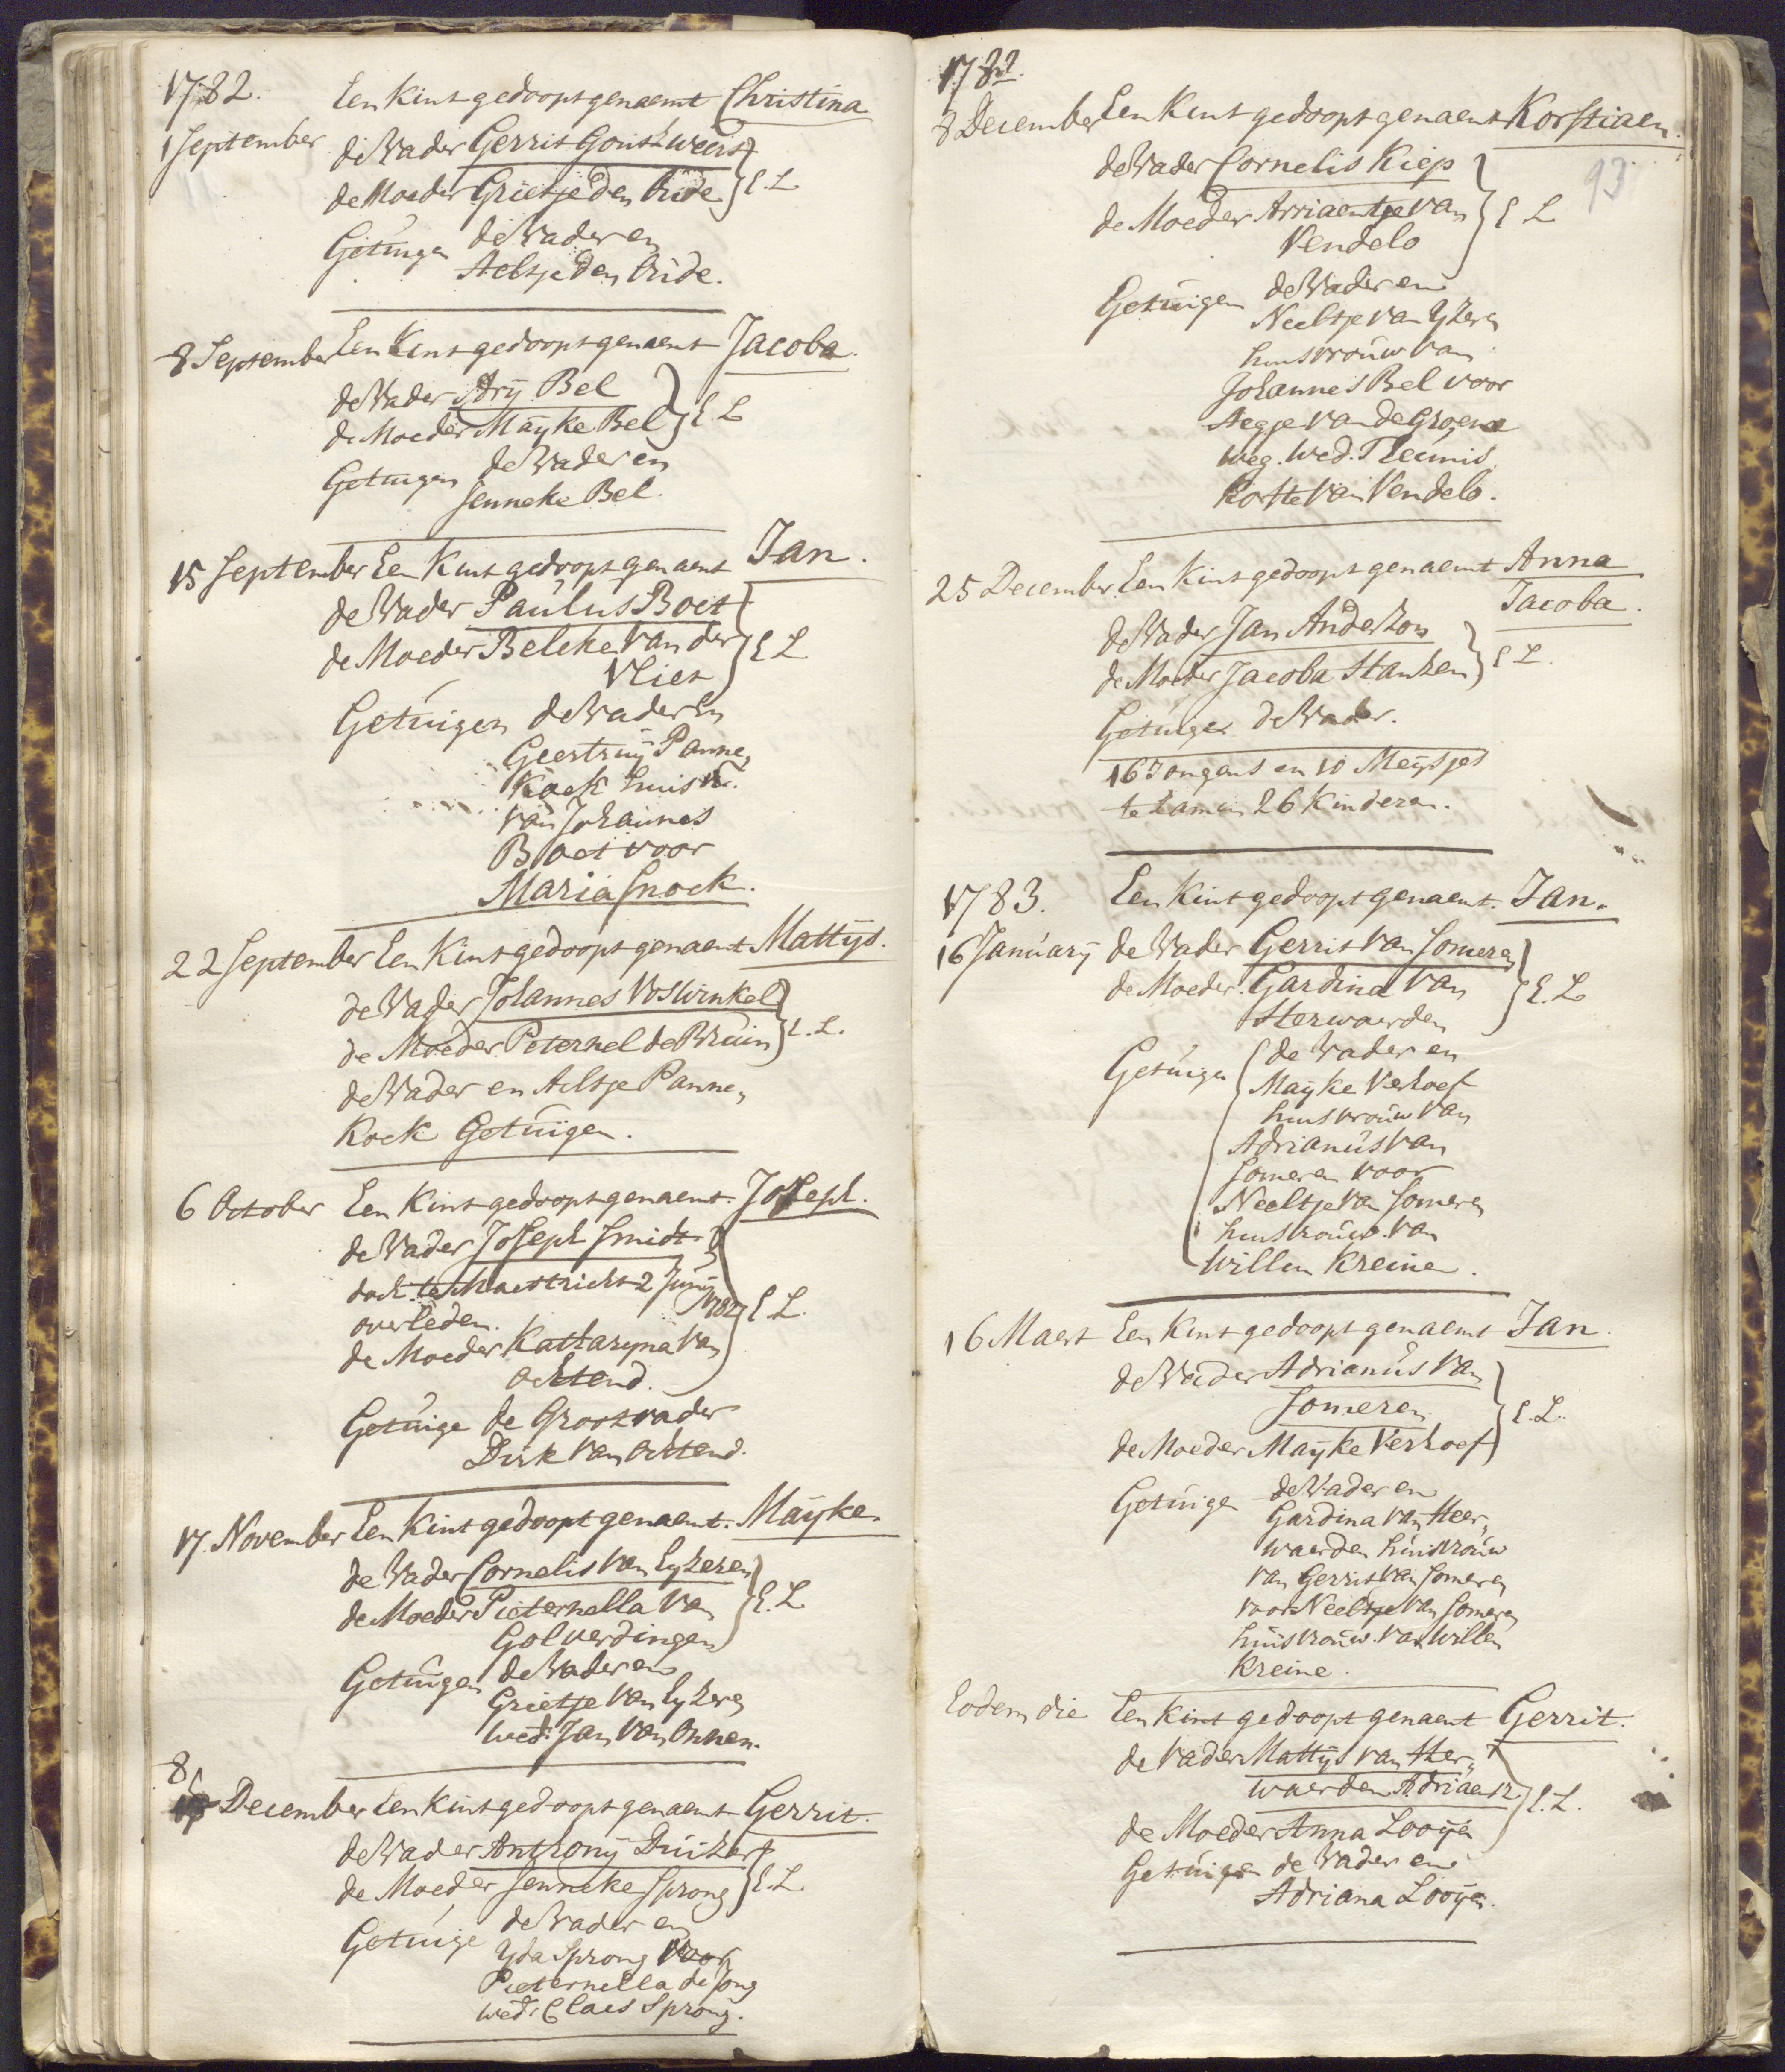 1782.
Een Kint gedoopt genaemt Christina
1 September
de Vader Gerrit Goutzweers
de Moeder Grietje den Oude } E. L
Getuigen de Vader en
Aeltje den Oude.
8 September Een Kint gedoopt genaemt Jacoba.
de Vader Arÿ Bel
de Moeder Maÿke Bel } E L
Getuigen de Vader en
Jenneke Bel.
15 September Een Kint gedoopt genaemt Jan.
de Vader Paulus Boet
de Moeder Beleke van der } E L
Vliet
Getuigen de Vader En
Geertruÿ Panne„
Koek huisvr.
van Johannes
Boet voor
Maria Snoek.
22 September Een Kint gedoopt genaemt Mattÿs.
de Vader Johannes Voswinkel
de Moeder Peternel de Bruin } E. L.
de Vader en Aeltje Panne„
Koek Getuigen.
6 October Een Kint gedoopt genaemt Joseph.
de Vader Joseph Smidt
doch te Mastricht 2 Junÿ
1782
overleden. } E L.
de Moeder Kattaryna van
Ochtend.
Getuige de Grootvader
Dirk van Ochtend.
17. November Een Kint gedoopt genaemt. Maÿke.
de Vader Cornelis van Eyzeren
de Moeder Pieternella van } E. L
Golverdingen
Getuigen de Vader en
Grietje van Eyzeren
wed: Jan van Onnen.
8
December Een Kint gedoopt genaemt Gerrit.
de Vader Anthonÿ Duizer
de Moeder Jenneke Sprong } E. L.
Getuige de Vader en
Yda Sprong voor
Pieternella de Jong
wed: Claes Sprong.
1782.
8 December Een Kint gedoopt genaemt Korstiaen.
93
de Vader Cornelis Kiep
de Moeder Arriaentje van } E L
Vendelo
Getuigen de Vader en
Neeltje van Yzeren
huisvrouw van
Johannes Bel voor
Aegje van de Groene
weg. wed. Teunis
Korste van Vendelo.
25 December. Een Kint gedoopt genaemt Anna
Jacoba.
de Vader Jan Anderzon
de Moeder Jacoba Stanzen } E L.
Getuige de Vader.
16 Jongens en 10 Meysjes
te zamen 26 Kinderen.
1783. Een Kint gedoopt genaemt. Jan.
16 Januarÿ de Vader Gerrit van Someren
de Moeder Gardina van } E. L
Herwaerden
Getuigen { de Vader en
Maÿke Verhoef
huisvrouw van
Adrianus van
Someren voor
Neeltje van Someren
huisvrouw van
Willem Kreine.
16 Maert Een Kint gedoopt genaemt Jan.
de Vader Adrianus van
Someren } E. L.
de Moeder Maÿke Verhoef
Getuigen de Vader en
Gardina van Heer„
waerden huisvrouw
van Gerrit van Someren
voor Neeltje van Someren
huisvrouw van Willem
Kreine.
Eodem die Een Kint gedoopt genaemt Gerrit.
de Vader Mattÿs van Her„
waerden Adriaensz. } E. L.
de Moeder Anna Looÿen
Getuigen de Vader en
Adriana Looÿen.